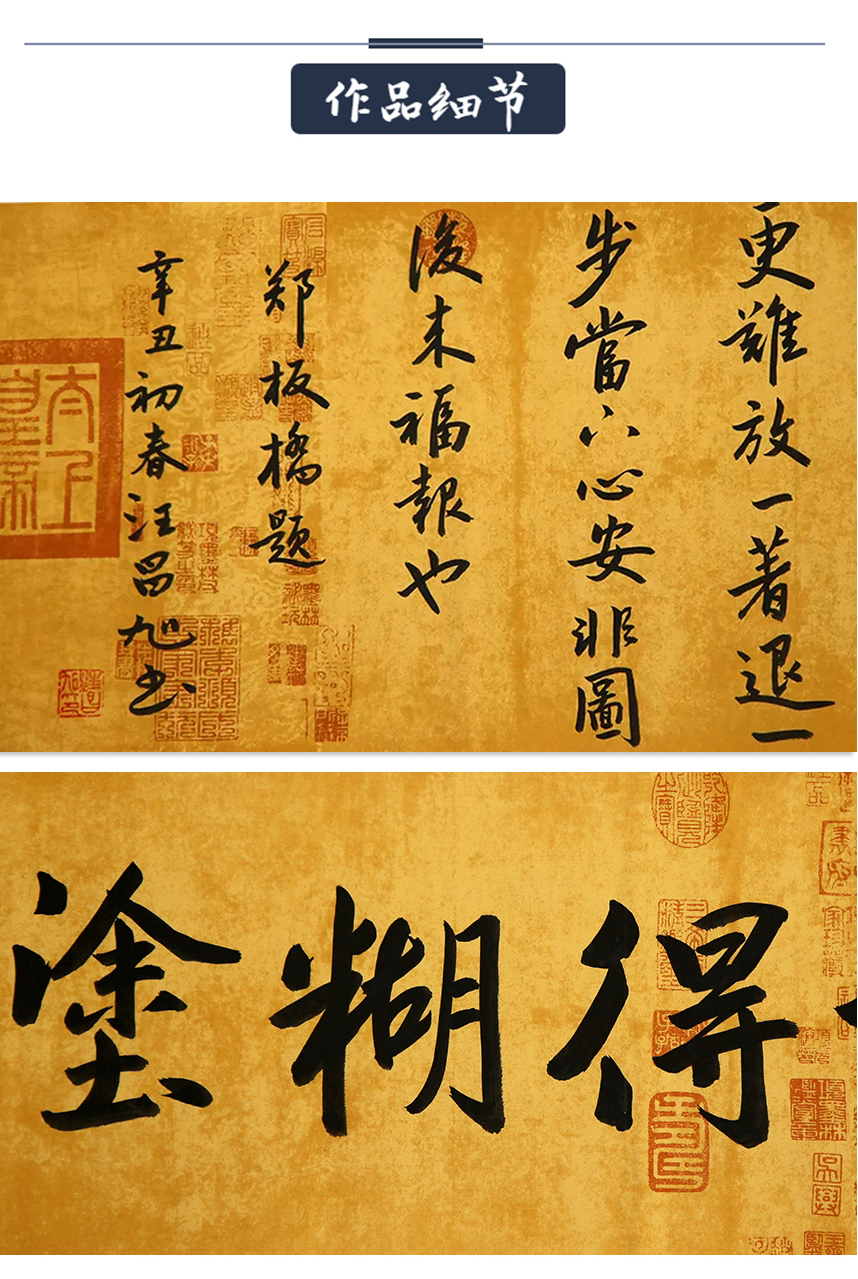 作品细节
更難放一著退一
步當下心安非圖
後来福報也
郑板橋题
辛丑初春汪昌旭书
得糊塗